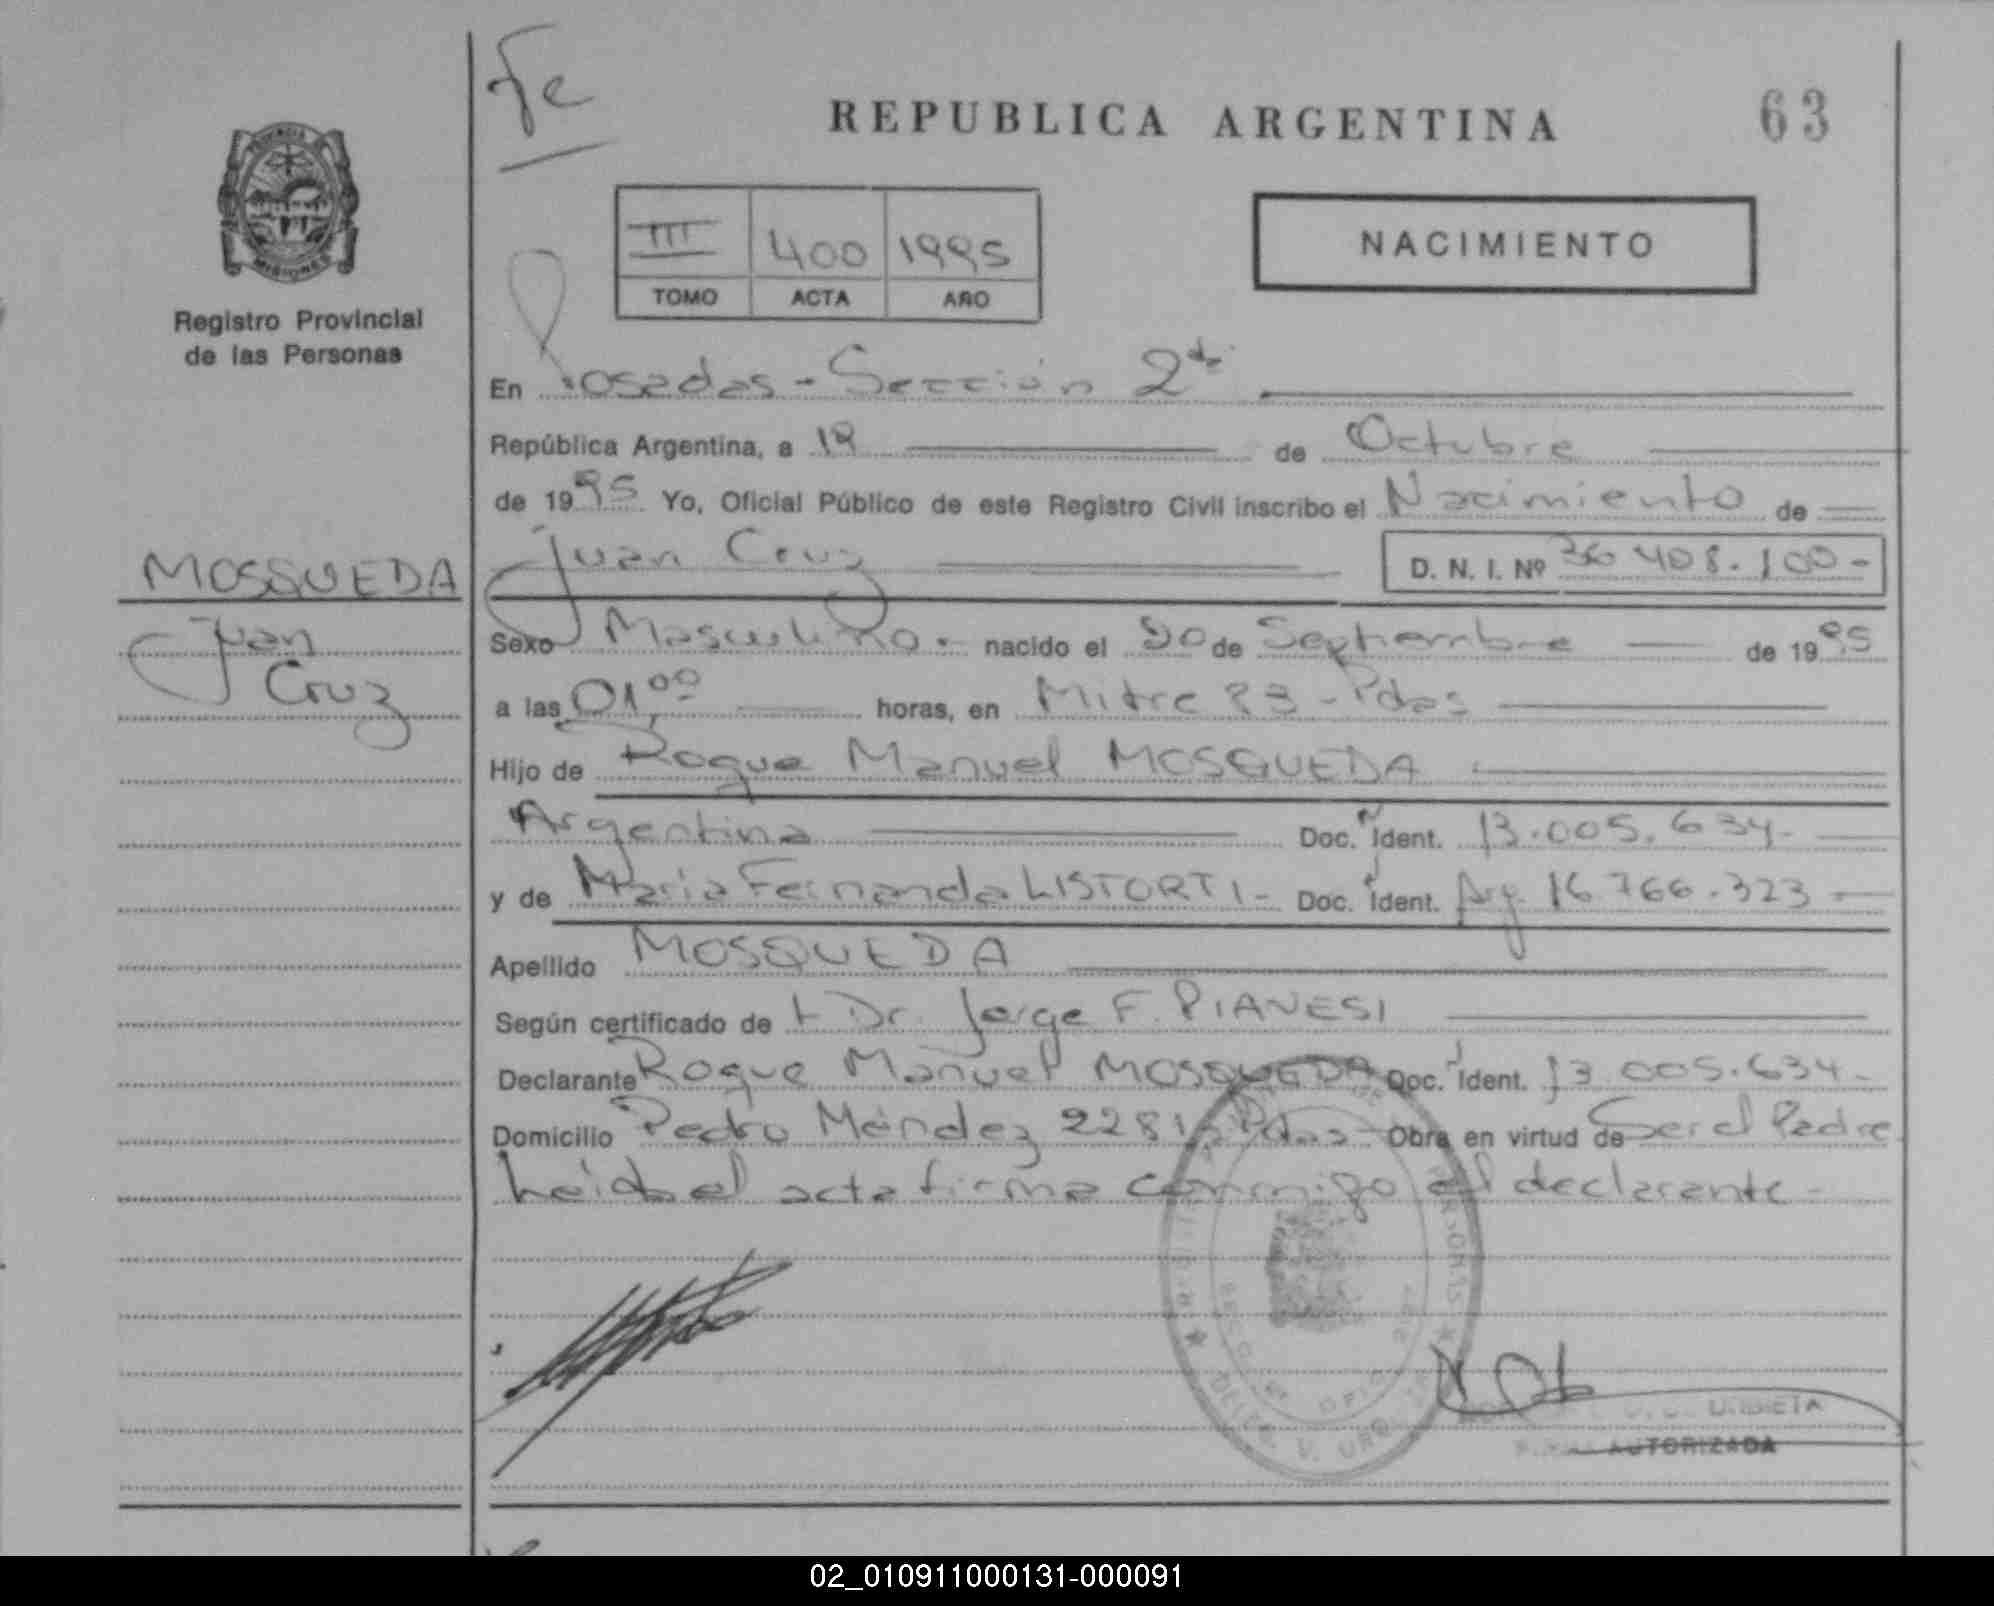 Fe
REPUBLICA ARGENTINA
63
PROVINCIA
MISIONES
Registro Provincial
de las Personas
III 400 1995
TOMO ACTA AÑO
NACIMIENTO
En Posadas - Sección 2da
República Argentina, a 19 de Octubre
de 1995 Yo, Oficial Público de este Registro Civil inscribo el Nacimiento de
MOSQUEDA
Juan Cruz
Juan Cruz D. N. I. Nº 36 408.100-
Sexo Masculino. nacido el de Septiembre de 1995
a las 01,00 horas, en Mitre 83 - Pdas
Hijo de Roque Manuel MOSQUEDA
Argentina Doc. Ident. 13.005.634-
y de Maria Fernanda LISTORTI - Doc. Ident. Arg. 16.766.323
Apellido MOSQUEDA
Según certificado de Dr. Jorge F. PIANESI
Declarante Roque Manuel MOSQUEDA Doc. Ident. 13.005.634-
Domicilio Pedro Méndez 2281 Pdas - Obra en virtud de Ser el Padre
Leída el acta firma conmigo el declarante -
PERSONAS
URBIETA
AUTORIZADA
02_010911000131-000091